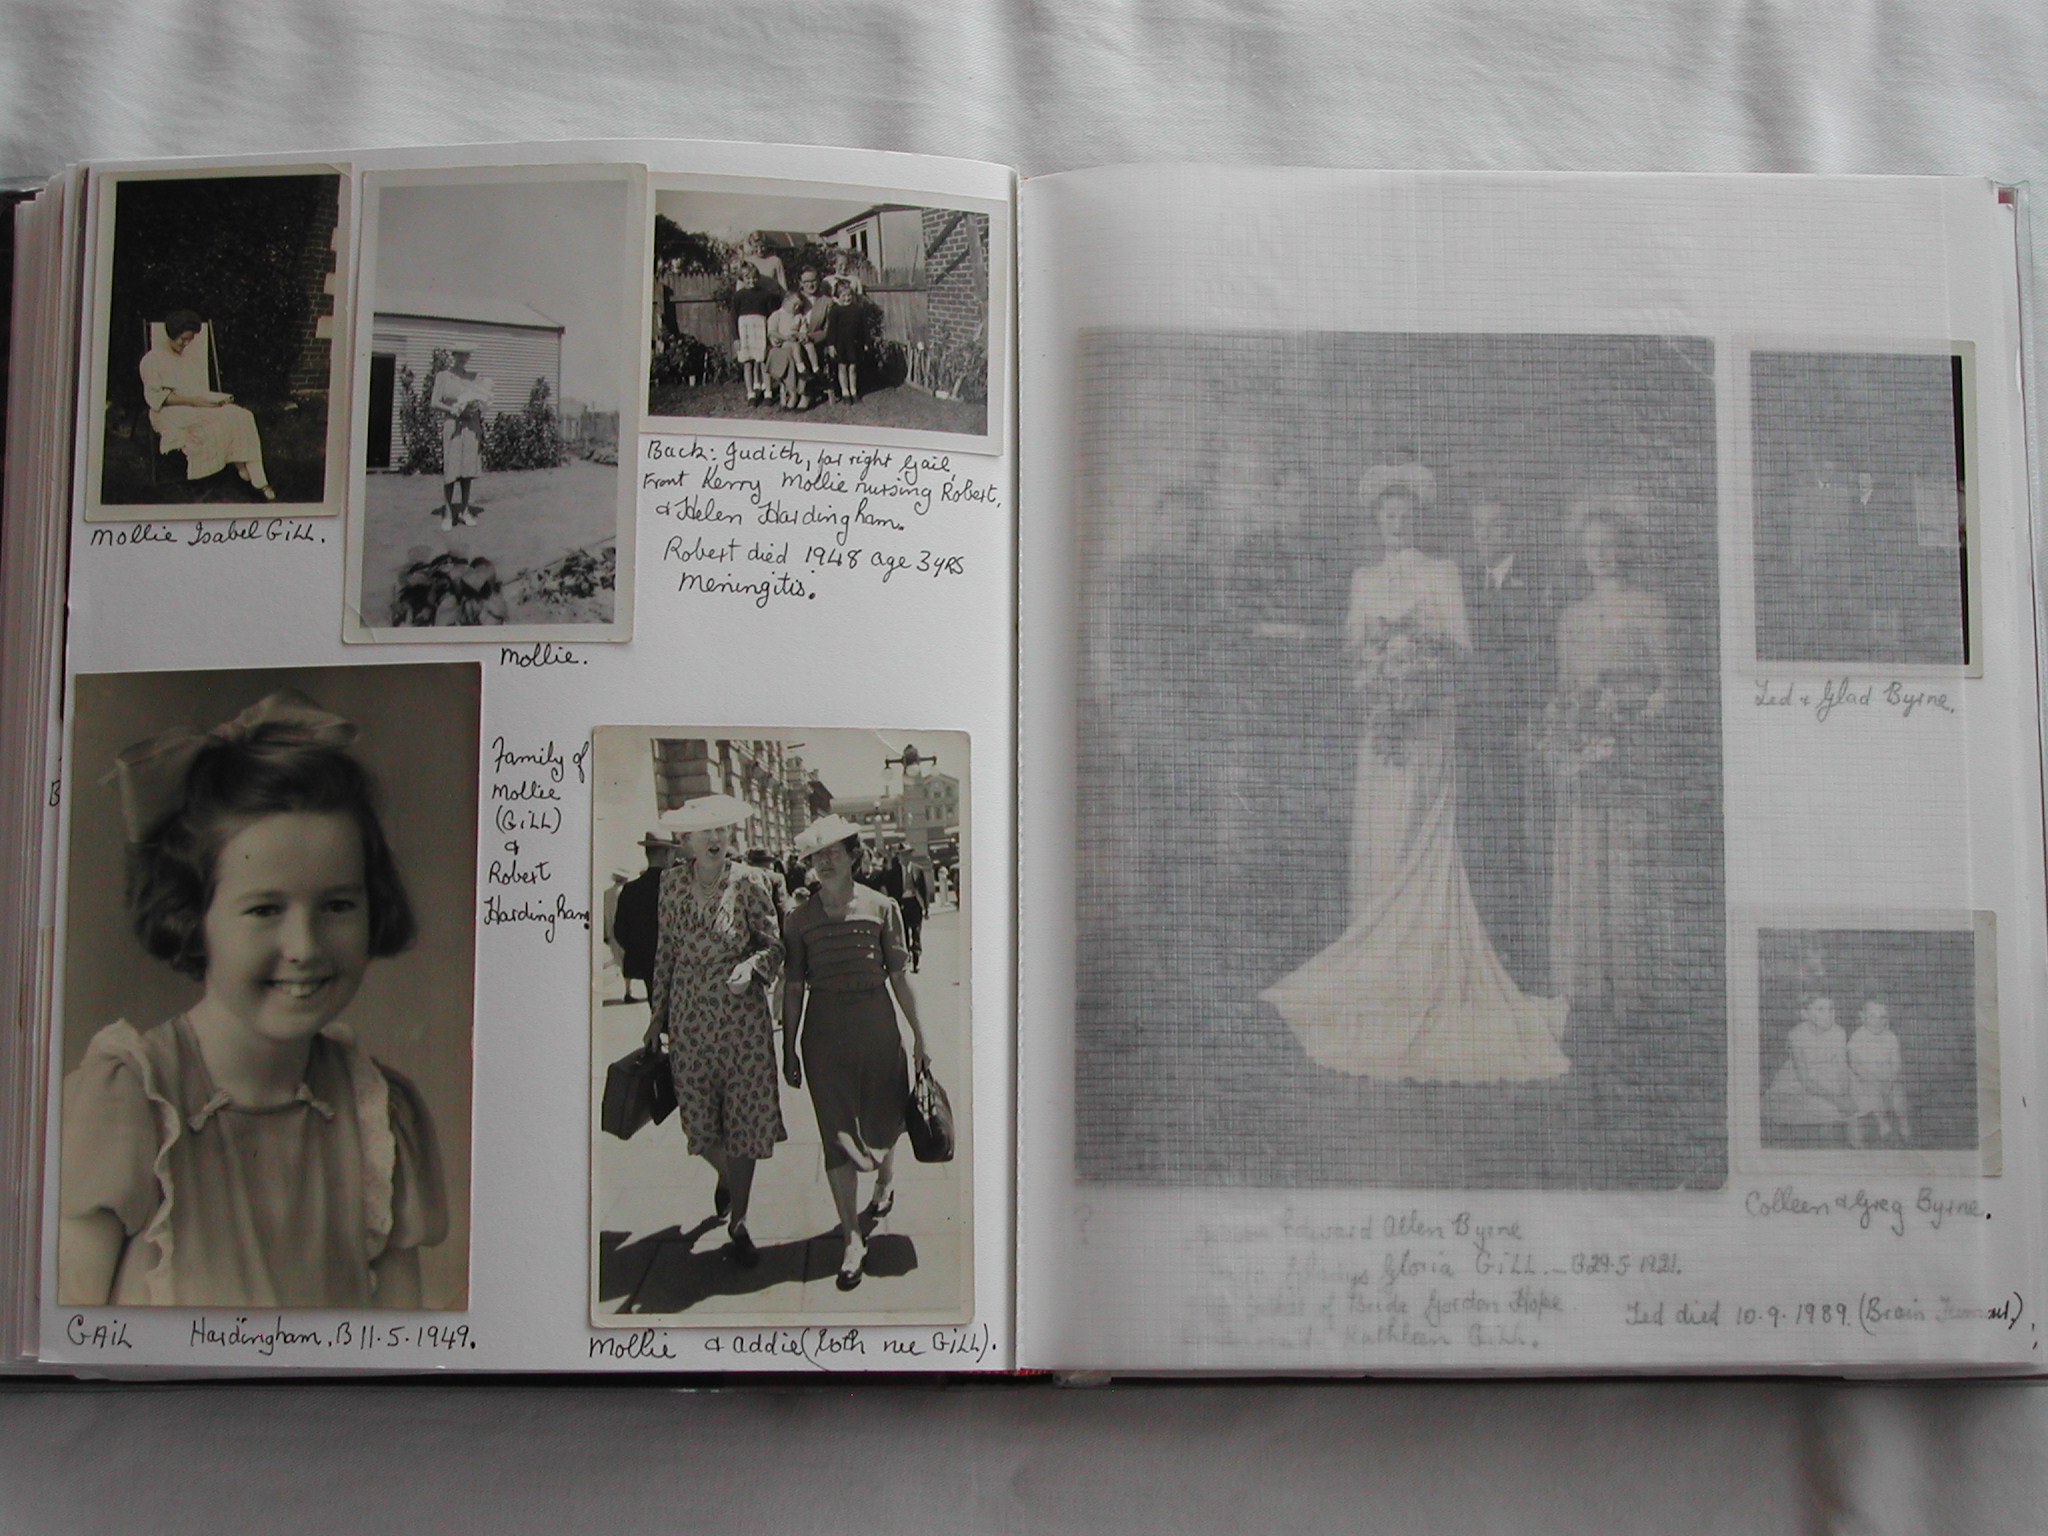 Mollie Isabel Gill.
Mollie.
Back: Judith, far right Gail,
Front Kerry Mollie nursing Robert,
& Helen Hardingham.
Robert died 1948 age 3yrs
Meningitis.
Family of
Mollie
(Gill)
&
Robert
Hardingham.
GAIL Hardingham. B 11.5.1949.
Mollie & Addie (both nee GILL).
Ted & Glad Byrne.
Colleen & Greg Byrne.
Edward Allen Byrne
Gladys Gloria Gill - B 29.5.1921.
of Bride Gordon Hope.
Kathleen Gill.
Ted died 10.9.1989 (Brain Tumour)